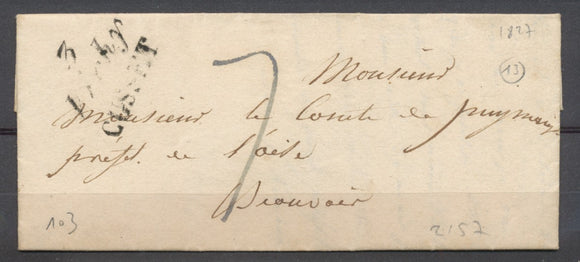 3
Vichy
CUSSET
1827
13
7
Monsieur
Monsieur le Comte de puymaigre
préft. de l'oise
Beauvais
103
2157